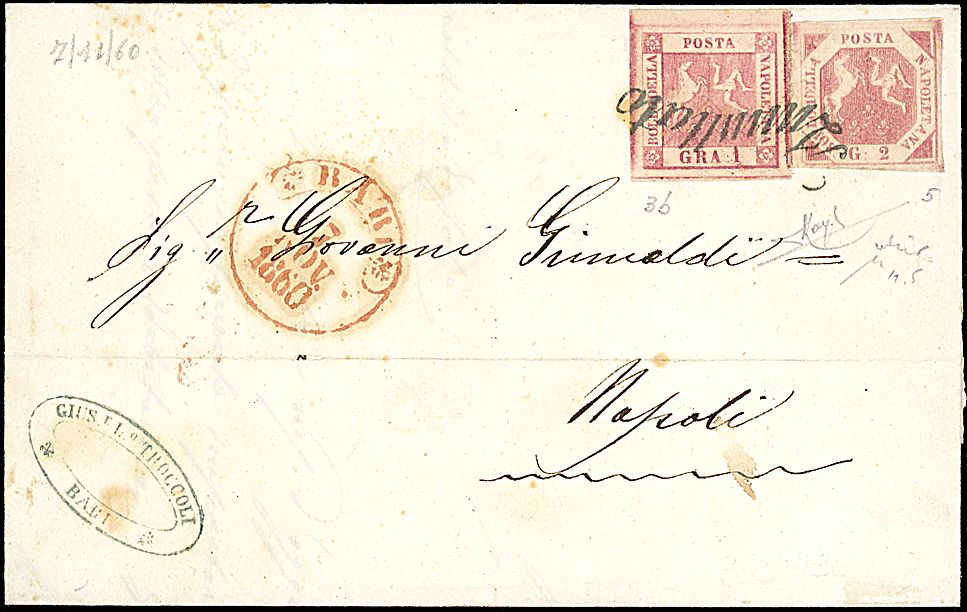 7/11/60
POSTA
BOLLO DELLA
NAPOLETANA
GRA 1
POSTA
BOLLO DELLA
NAPOLETANA
G. 2
Annullato
3b
5
n.5
BARI
7
NOV.
1860
Sig.r Giovanni Grimaldi =
Napoli
GIUS.E L.o TROCCOLI
BARI